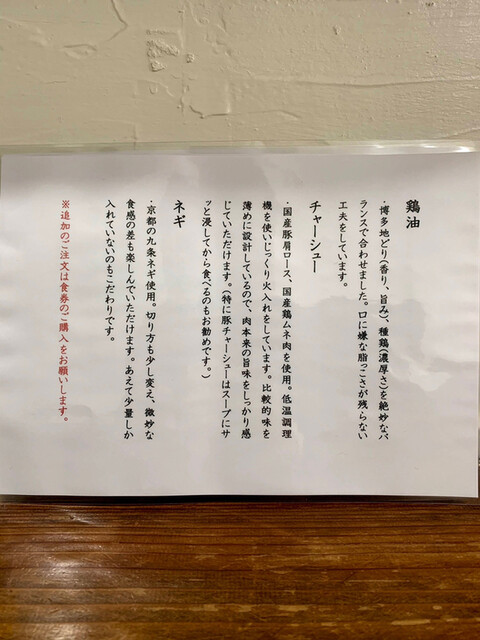 鶏油
・博多地どり(香り、旨み)、種鶏(濃厚さ)を絶妙なバ
ランスで合わせました。口に嫌な脂っこさが残らない
工夫をしています。
チャーシュー
・国産豚肩ロース、国産鶏ムネ肉を使用。低温調理
機を使いじっくり火入れをしています。比較的味を
薄めに設計しているので、肉本来の旨味をしっかり感
じていただけます。(特に豚チャーシューはスープにサ
ッと浸してから食べるのもお勧めです。)
ネギ
・京都の九条ネギ使用。切り方も少し変え、微妙な
食感の差も楽しんでいただけます。あえて少量しか
入れていないのもこだわりです。
※追加のご注文は食券のご購入をお願いします。